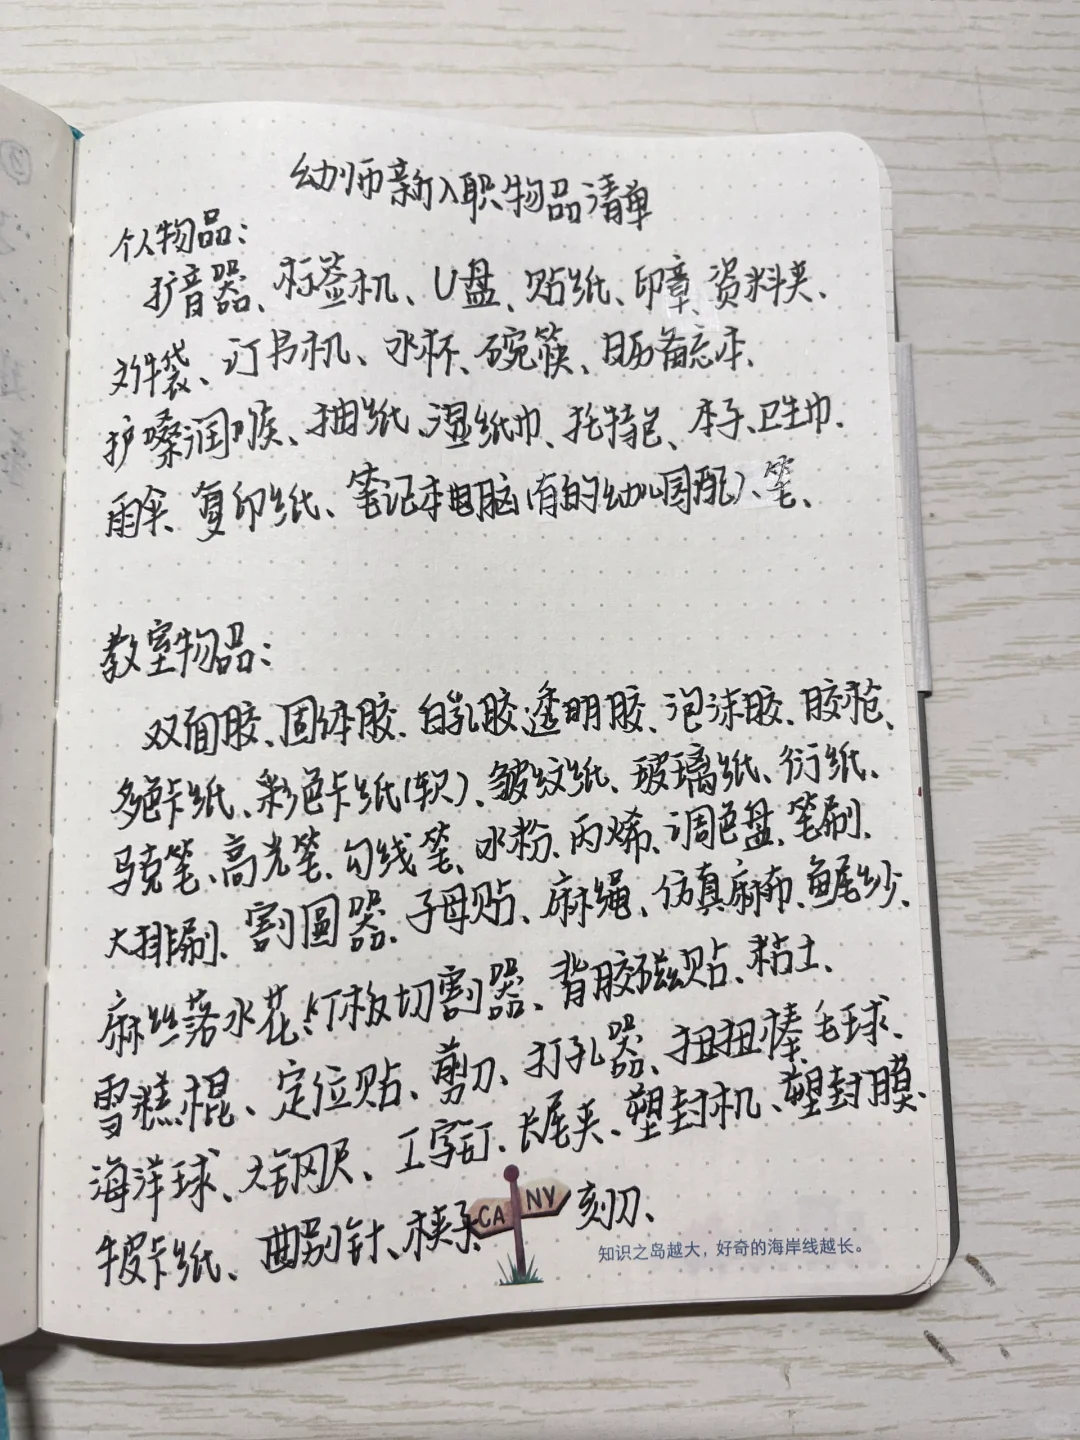 幼师新入职物品清单
个人物品：
扩音器、标签机、U盘、贴纸、印章、资料夹、
文件袋、订书机、水杯、碗筷、日历备忘本、
护嗓润喉、抽纸、湿纸巾、托特包、本子、卫生巾、
雨伞、复印纸、笔记本电脑(有的幼儿园配)、笔、
教室物品：
双面胶、固体胶、白乳胶、透明胶、泡沫胶、胶枪、
多色卡纸、彩色卡纸(软)、皱纹纸、玻璃纸、衍纸、
马克笔、高光笔、勾线笔、水粉、丙烯、调色盘、笔刷、
大排刷、割圆器、子母贴、麻绳、仿真麻布、鱼尾纱、
麻丝落水花、KT板切割器、背胶磁贴、粘土、
雪糕棍、定位贴、剪刀、打孔器、扭扭棒、毛球、
海洋球、大钢尺、工字钉、长尾夹、塑封机、塑封膜、
牛皮卡纸、曲别针、木夹子、刻刀、
CA NY
知识之岛越大，好奇的海岸线越长。